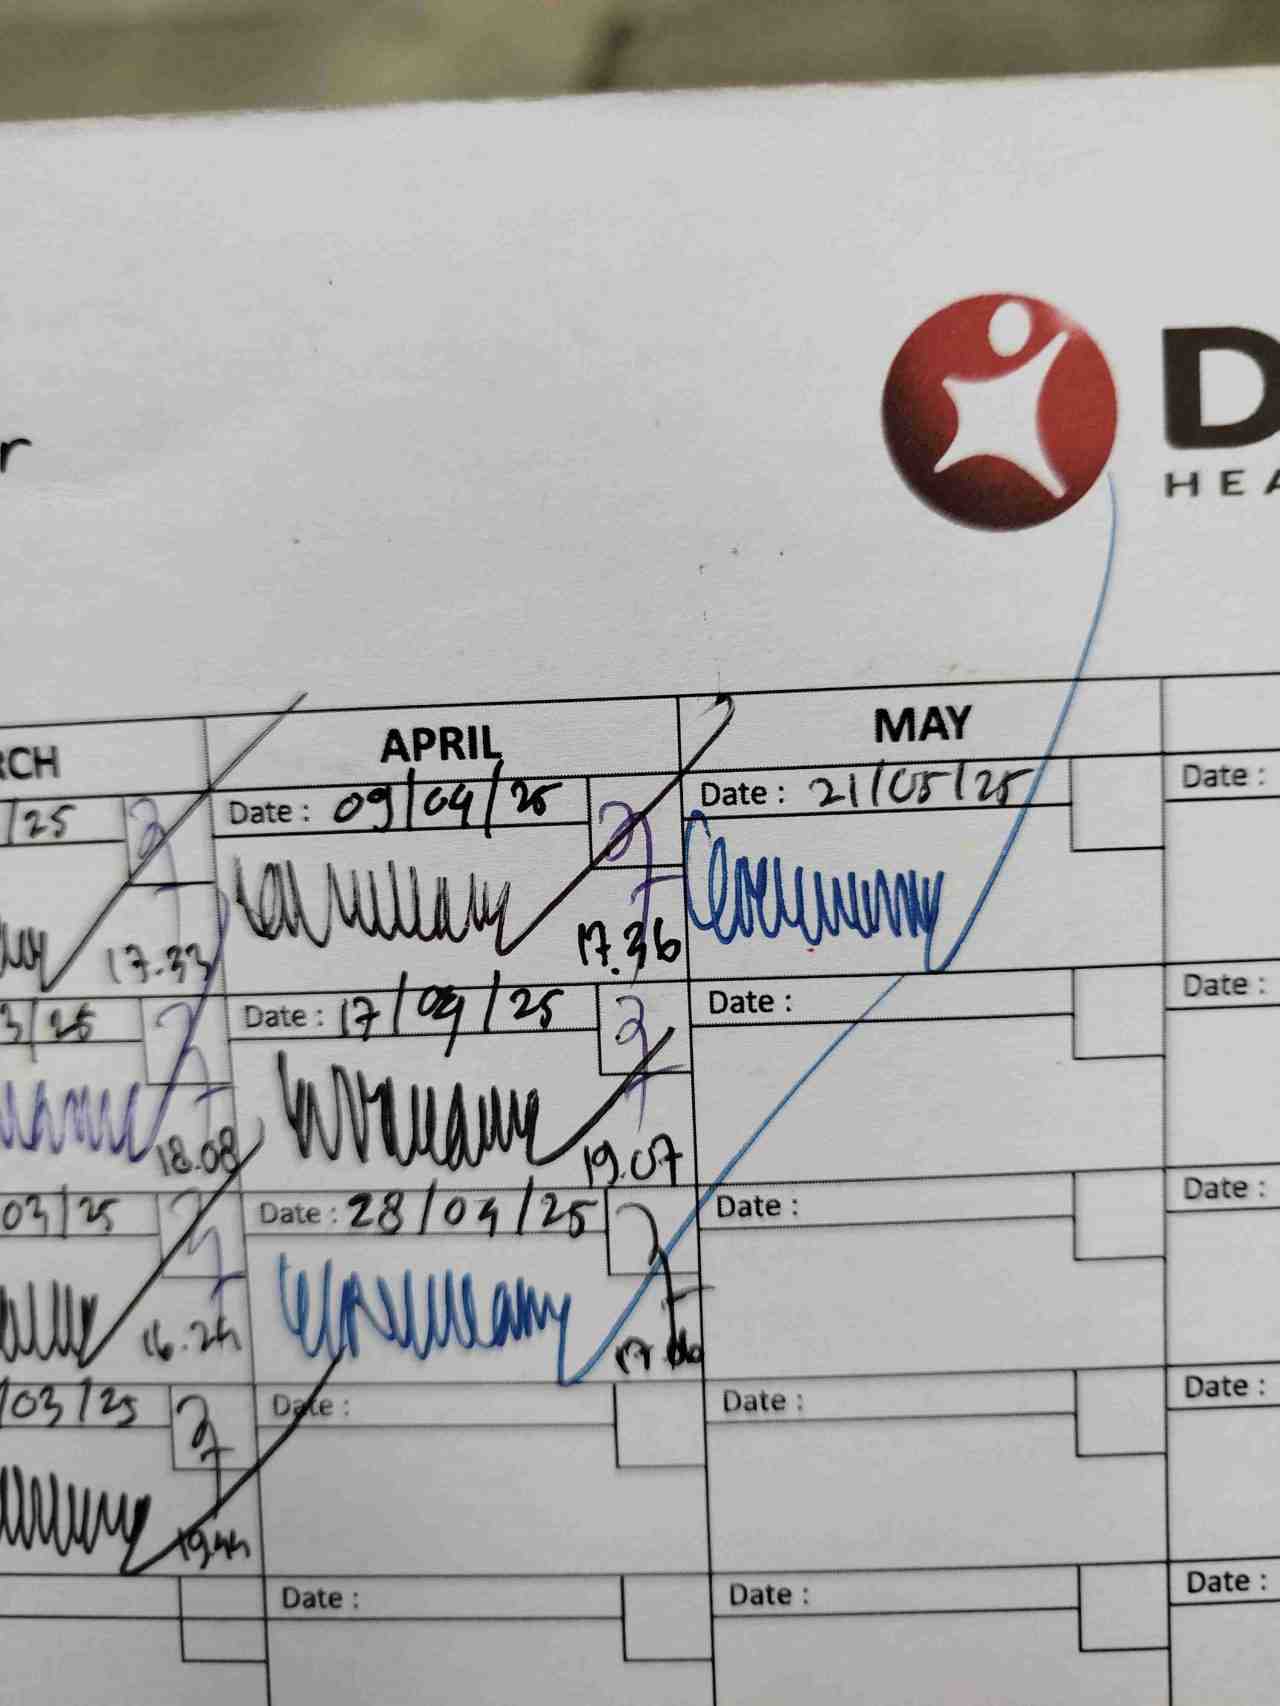 r
D
HEA
RCH
APRIL
MAY
/25
Date : 09/04/25
Date : 21/05/25
Date :
17.33
17.36
3/25
Date : 17/04/25
Date :
Date :
18.08
19.07
03/25
Date : 28/04/25
Date :
Date :
16.24
/03/25
Date :
Date :
Date :
19.44
Date :
Date :
Date :